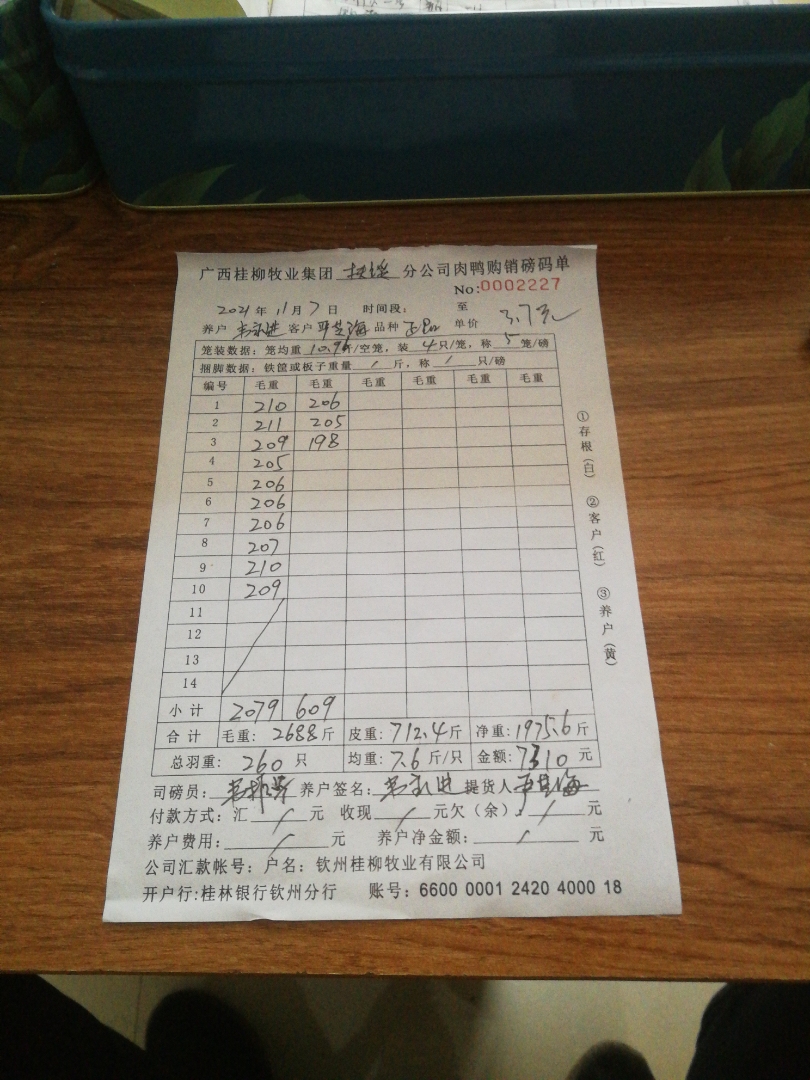 广西桂柳牧业集团 扶绥 分公司肉鸭购销磅码单
No:0002227
2021年 11月 7日 时间段: 至
养户 客户 海 品种 单价 3.7元
笼装数据: 笼均重 10.96斤/空笼, 装 4只/笼, 称 5 笼/磅
捆脚数据: 铁筐或板子重量 / 斤, 称 / 只/磅
编号 毛重 毛重 毛重 毛重 毛重 毛重
1 210 206
2 211 205
3 209 198
4 205
5 206
6 206
7 206
8 207
9 210
10 209
11
12
13
14
小计 2079 609
合计 毛重: 2688斤 皮重: 712.4斤 净重: 1975.6斤
总羽重: 260 只 均重: 7.6 斤/只 金额: 7310 元
司磅员: 养户签名: 提货人 海
付款方式: 汇 / 元 收现 / 元欠(余) / 元
养户费用: / 元 养户净金额: / 元
公司汇款帐号: 户名: 钦州桂柳牧业有限公司
开户行:桂林银行钦州分行 账号: 6600 0001 2420 4000 18
①存根(白) ②客户(红) ③养户(黄)